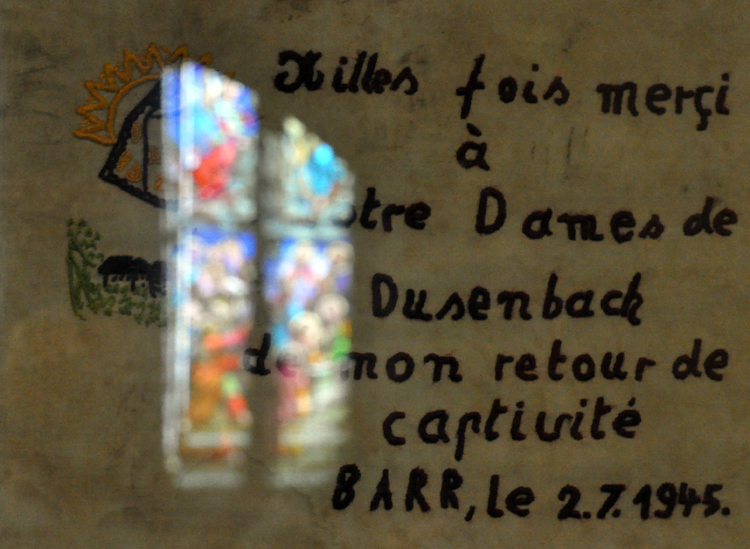 Milles fois merçi
à
tre Dames de
Dusenbach
de mon retour de
captivité
BARR, le 2.7.1945.